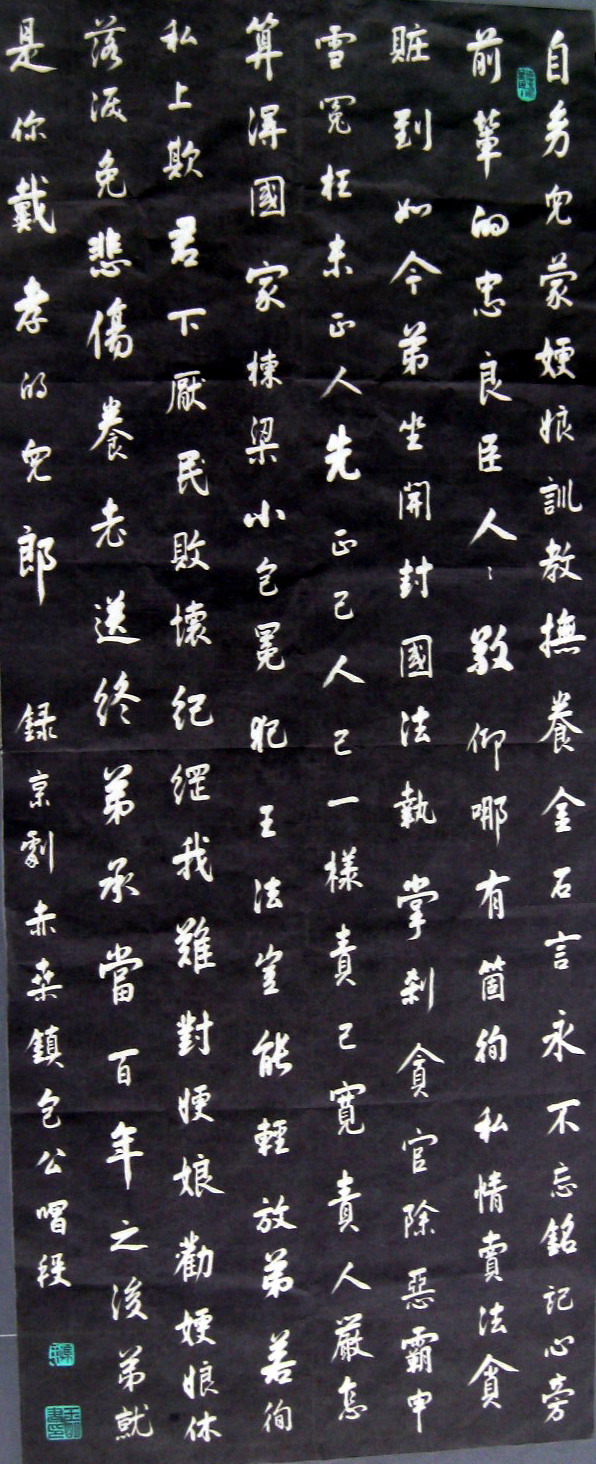 自幼兒蒙嫂娘訓教撫養金石言永不忘銘記心旁
前輩的忠良臣人々敬仰哪有箇徇私情賣法貪
贓到如今弟坐開封國法執掌剎貪官除惡霸申
雪冤枉未正人先正己人己一樣責己寬責人嚴怎
算得國家棟梁小包冕犯王法豈能輕放弟若徇
私上欺君下厭民敗壞紀綱我難對嫂娘勸嫂娘休
落淚免悲傷養老送終弟承當百年之後弟就
是你戴孝的兒郎 錄京劇赤桑鎮包公唱段